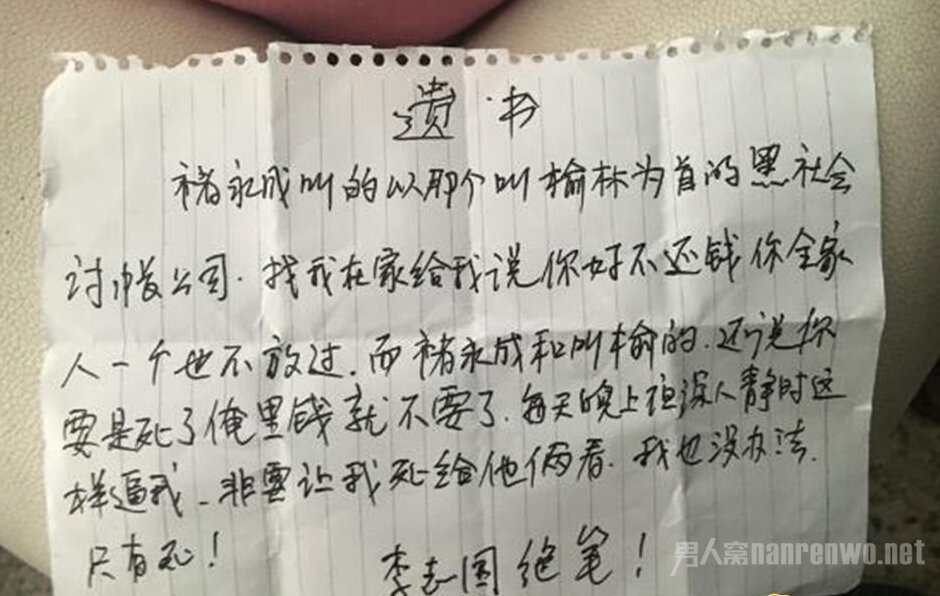 遗书
褚永成叫的以那个叫榆林为首的黑社会
讨帐公司.找我在家给我说你好不还钱你全家
人一个也不放过.而褚永成和叫榆的.还说你
要是死了俺里钱就不要了.每天晚上夜深人静时这
样逼我.非要让我死给他俩看.我也没办法.
只有死!
李志国绝笔!
男人窝nanrenwo.net